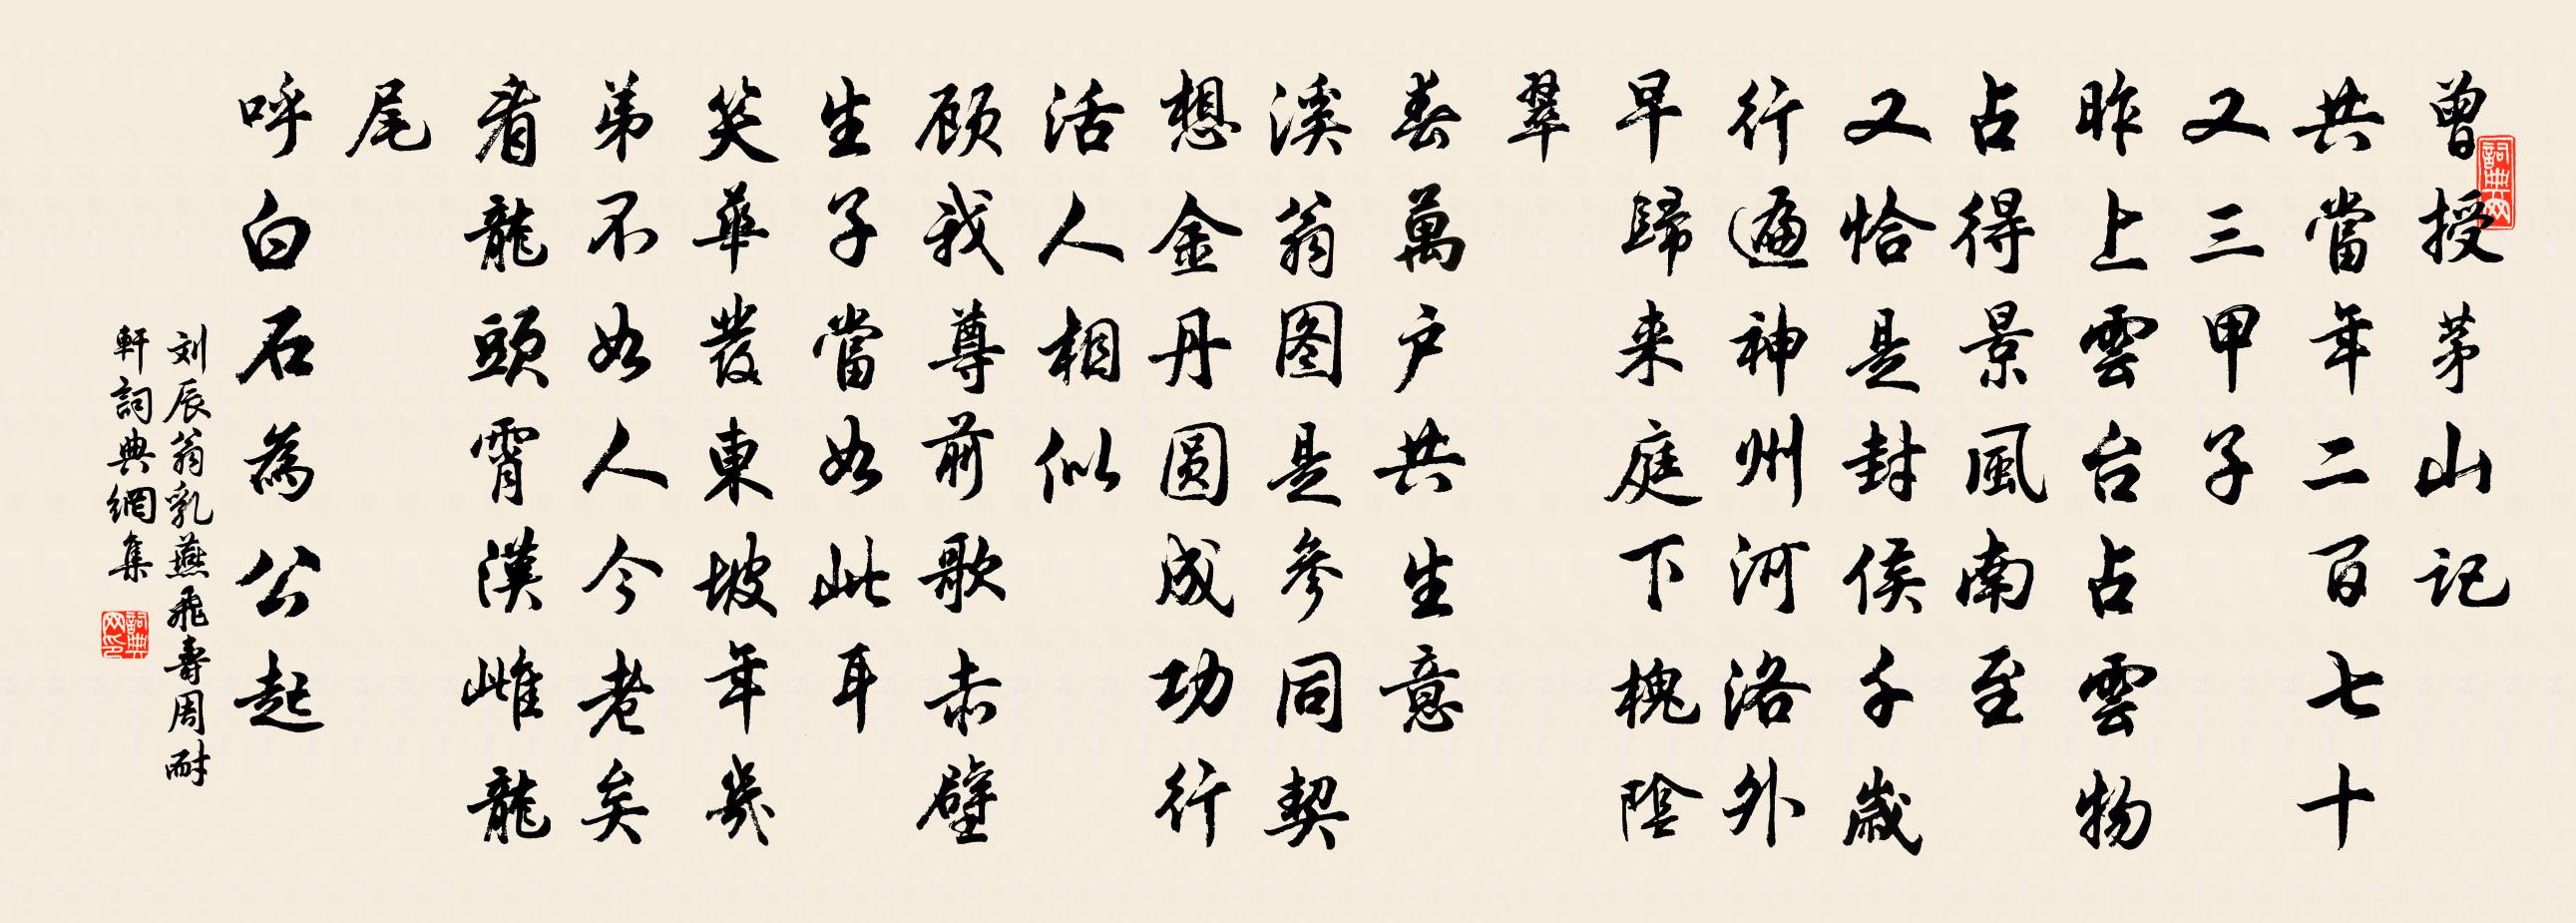 曾授茅山記
共當年二百七十
又三甲子
昨上雲台占雲物
占得景風南至
又恰是封侯千歲
行遍神州河洛外
早歸来庭下槐陰
翠
春萬户共生意
溪翁图是參同契
想金丹圆成功行
活人相似
顾我尊前歌赤壁
生子當如此耳
笑華發東坡年幾
弟不如人今老矣
看龍頭霄漢雌龍
尾
呼白石為公起
刘辰翁乳燕飛壽周耐
軒詞典網集